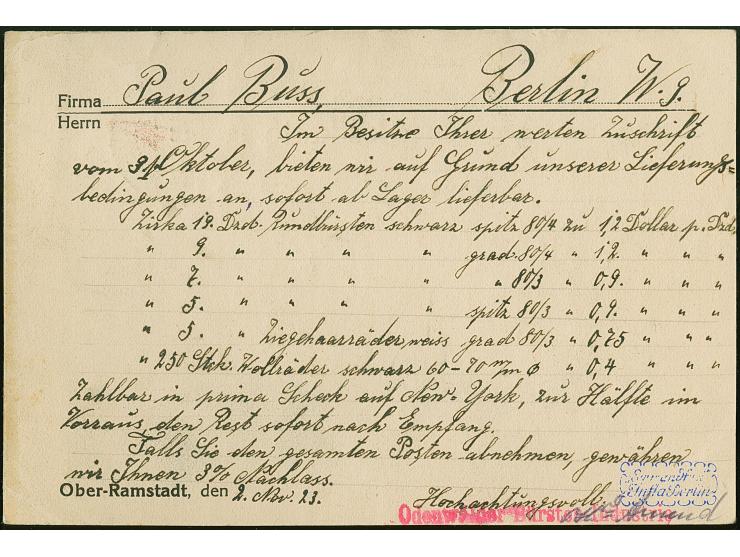 Firma Paul Buss, Berlin W. 9.
Herrn
Im Besitze Ihrer werten Zuschrift
vom 31. Oktober, bieten wir auf Grund unserer Lieferungs=
bedingungen an, sofort ab Lager lieferbar.
Zirka 19. Dzd. Rundbürsten schwarz spitz 80/4 zu 1,2 Dollar p. Dzd.
" 9. " " " " grad 80/4 " 1,2. " " "
" 7. " " " " " 80/3 " 0,9. " " "
" 5. " " " " spitz 80/3 " 0,9. " " "
" 5. " Ziegehaarräder weiss grad 80/3 " 0,75 " " "
" 250 Stck. Wollräder schwarz 60-70 m/m ø " 0,4 " " "
Zahlbar in prima Scheck auf New-York, zur Hälfte im
Vorraus, den Rest sofort nach Empfang.
Falls Sie den gesamten Posten abnehmen, gewähren
wir Ihnen 3% Nachlass.
Ober-Ramstadt, den 2. Nov. 23. Hochachtungsvoll
Infla Berlin
Odenwälder Bürstenindustrie